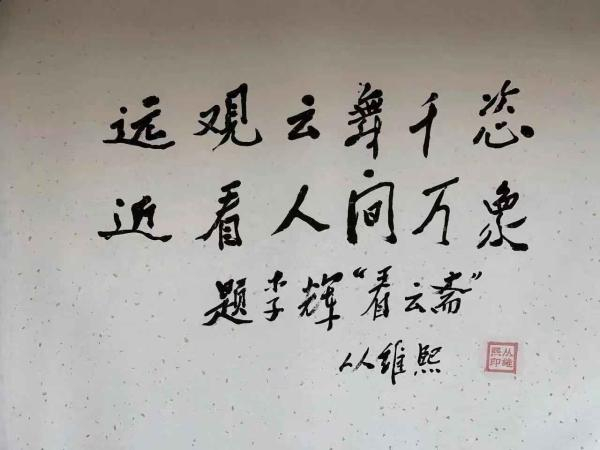 远观云舞千恣
近看人间万象
题李辉“看云斋”
从维熙
从维
熙印